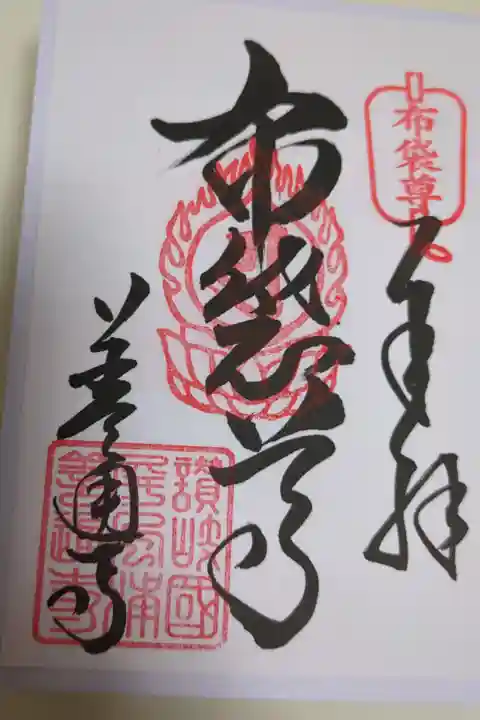 布袋尊
奉拝
布袋尊
善通寺
讃岐國
善通寺